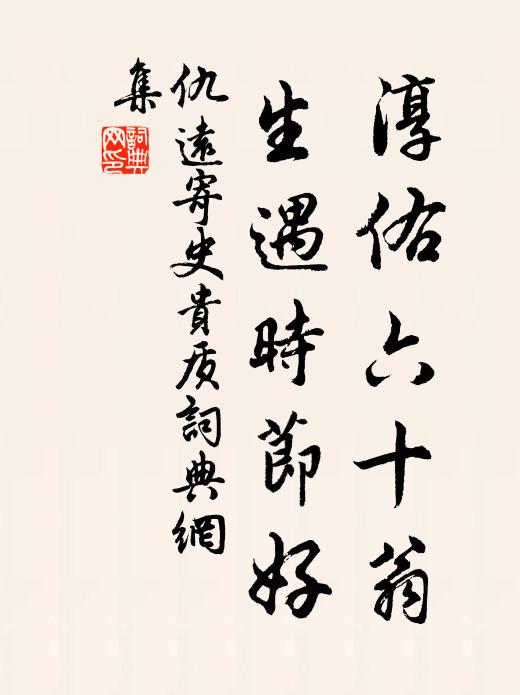 淳佑六十翁
生遇時節好
仇遠寄史貴质詞典網
集
詞典
网印